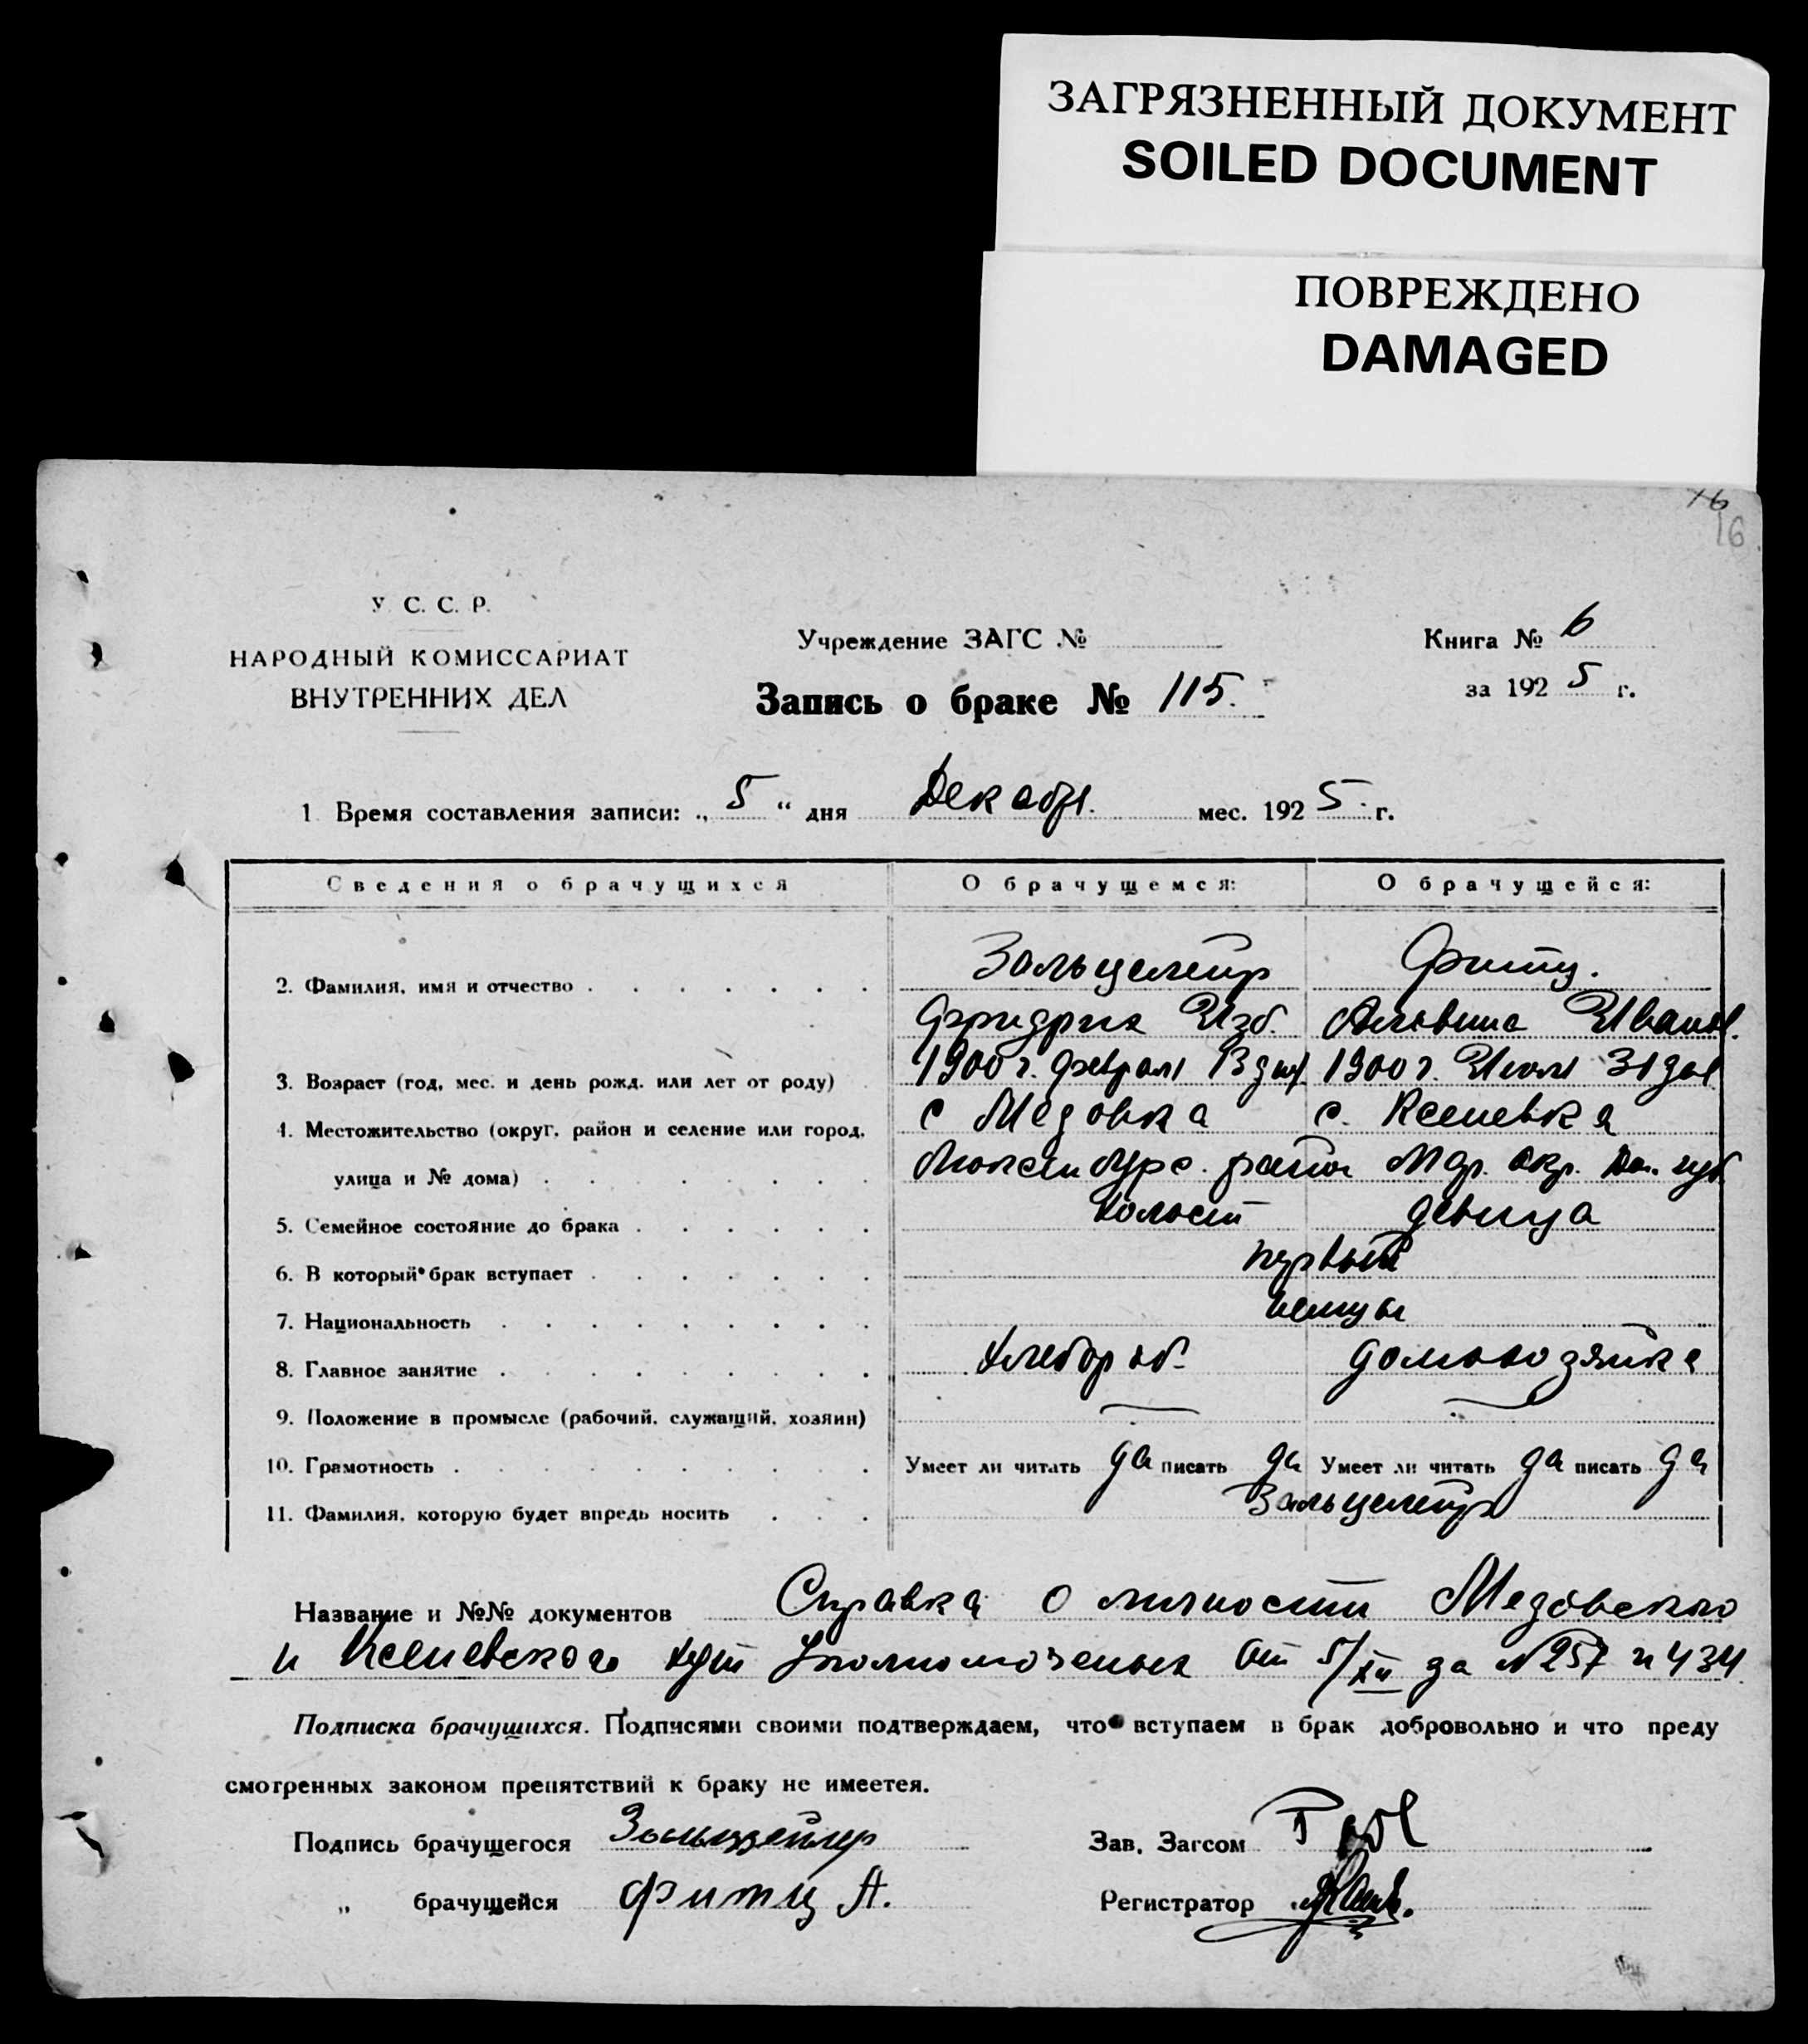 ЗАГРЯЗНЕННЫЙ ДОКУМЕНТ
SOILED DOCUMENT
ПОВРЕЖДЕНО
DAMAGED
16
16
У. С. С. Р.
НАРОДНЫЙ КОМИССАРИАТ
ВНУТРЕННИХ ДЕЛ
Учреждение ЗАГС №
Книга № 6
за 1925 г.
Запись о браке № 115.
1 Время составления записи: „ 5 “ дня Декабря мес. 1925 г.
Сведения о брачущихся О брачущемся: О брачущейся:
2. Фамилия, имя и отчество Зальцелейр Фитц.
Фридрих Альвина Иванов.
3. Возраст (год, мес. и день рожд. или лет от роду) 1900 г. февраля 13 дня 1900 г. Июля 31 дня
4. Местожительство (округ, район и селение или город, с Медовка с. Ксениевка
улица и № дома) Люксембург. район Мар. окр. Дон. губ
5. Семейное состояние до брака холост девица
6. В который брак вступает первый
7. Национальность немцы
8. Главное занятие хлебороб. домохозяйка
9. Положение в промысле (рабочий, служащий, хозяин) — —
10. Грамотность Умеет ли читать да писать да Умеет ли читать да писать да
11. Фамилия, которую будет впредь носить Зальцелейр
Название и №№ документов Справка о личности Медовского
и Ксениевского Уполномоченых от 5/XII за №257 и 434
Подписка брачущихся. Подписями своими подтверждаем, что вступаем в брак добровольно и что преду
смотренных законом препятствий к браку не имеется.
Подпись брачущегося
Зав. Загсом
„ брачущейся Фитц А.
Регистратор